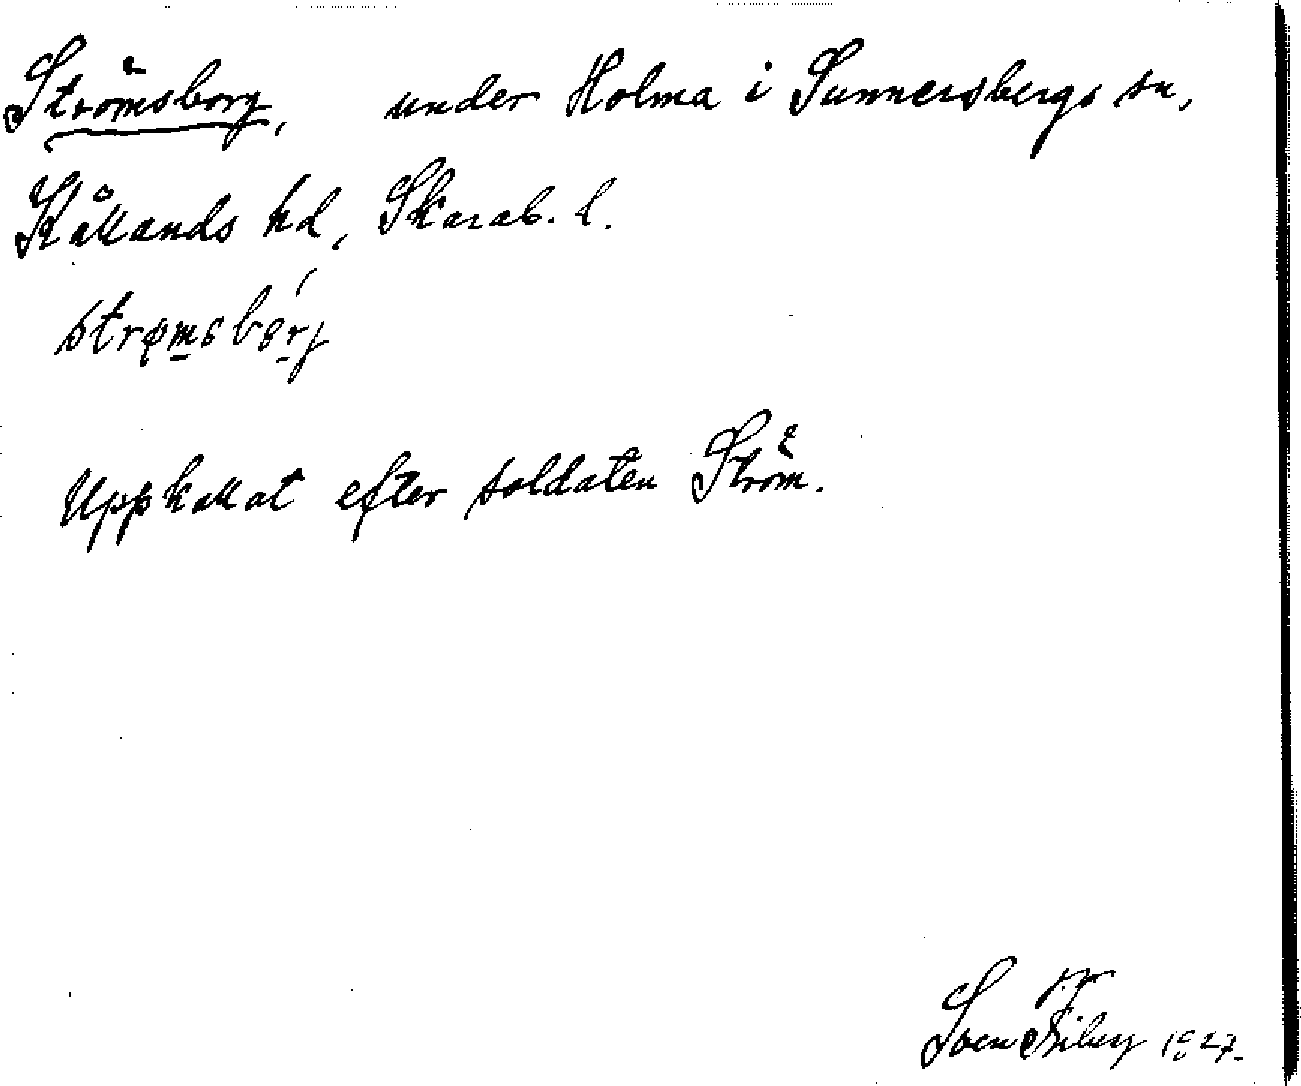 Strömsborg, under Holma i Sunnersbergs sn,
Kållands hd, Skarab. l.
strømsbórj
Uppkallat efter soldaten Ström.
Sven Friberg 1927.